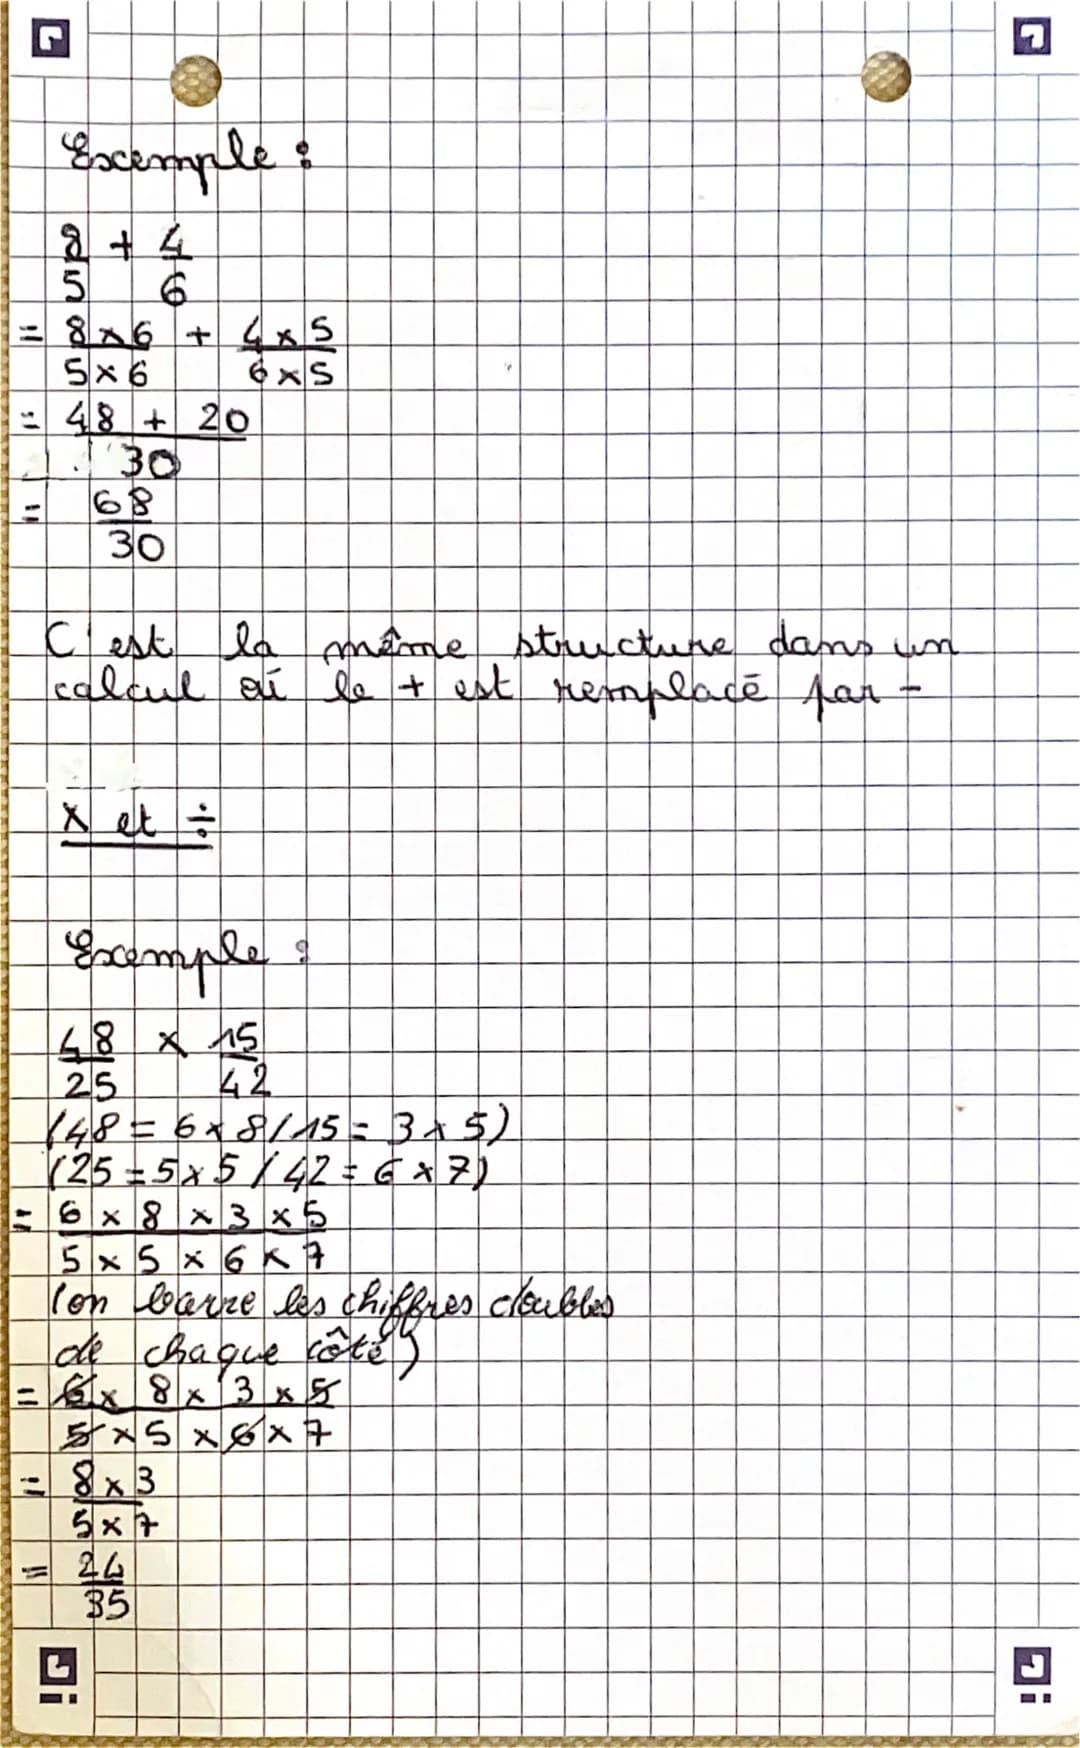 Exemple :
8/5 + 4/6
= 8×6/5×6 + 4×5/6×5
= 48 + 20/30
= 68/30
C'est la même structure dans un
calcul où le + est remplacé par -
X et ÷
Exemple :
48/25 × 15/42
(48 = 6×8/15 = 3×5)
(25 = 5×5 / 42 = 6×7)
= 6×8×3×5/5×5×6×7
(on barre les chiffres doubles
de chaque côté)
= 6×8×3×5/5×5×6×7
= 8×3/5×7
= 24/35